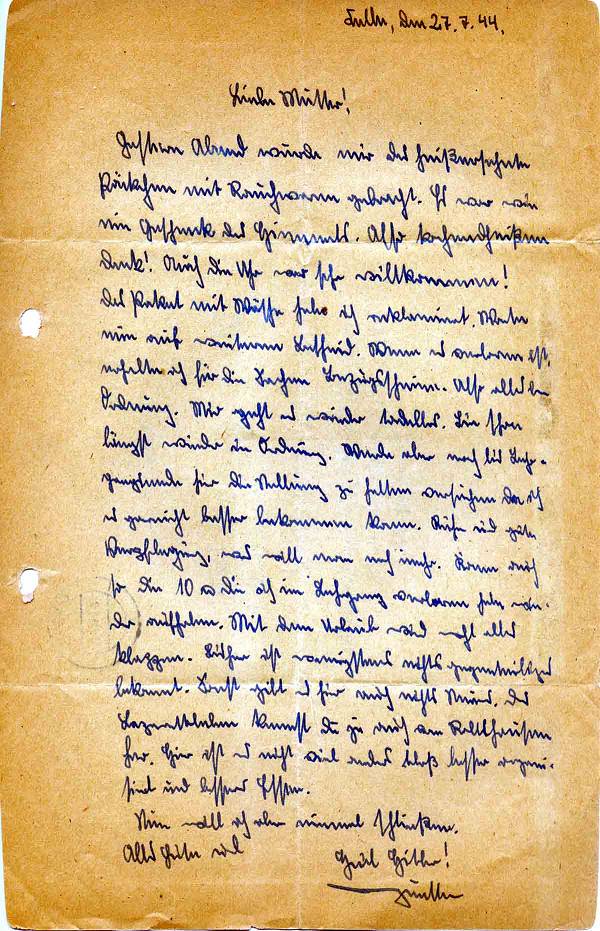 Fulda, den 27.7.44.
Liebe Mutter!
Gestern Abend wurde mir das heißersehnte
Päckchen mit Rauchwaren gebracht. Es war wie
ein Geschenk des Himmels. Also kochendheißen
Dank! Auch die Uhr war sehr willkommen!
Das Paket mit Wäsche habe ich reklamiert. Warte
nun auf weiteren Bescheid. Wenn es verloren ist,
erhalte ich für die Sachen Bezugsscheine. Also alles in
Ordnung. Mir geht es wieder tadellos. Bin schon
längst wieder in Ordnung. Werde aber noch bis Lehr-
gangsende hier die Stellung zu halten versuchen da ich
es garnicht besser bekommen kann. Ruhe und gute
Verpflegung, was will man noch mehr. Kann auch
so die 10 die ich im Lehrgang verloren habe wie-
der aufholen. Mit dem Urlaub wird wohl alles
klappen. Bisher ist wenigstens nichts gegenteiliges
bekannt. Sonst gibt es hier auch nichts Neues. Das
Lazarettleben kennst du ja auch von
her. Hier ist es nicht viel anders bloß besser organi-
siert und besseres Essen.
Nun will ich aber einmal schließen.
Alles Gute und
Heil Hitler!
Günther